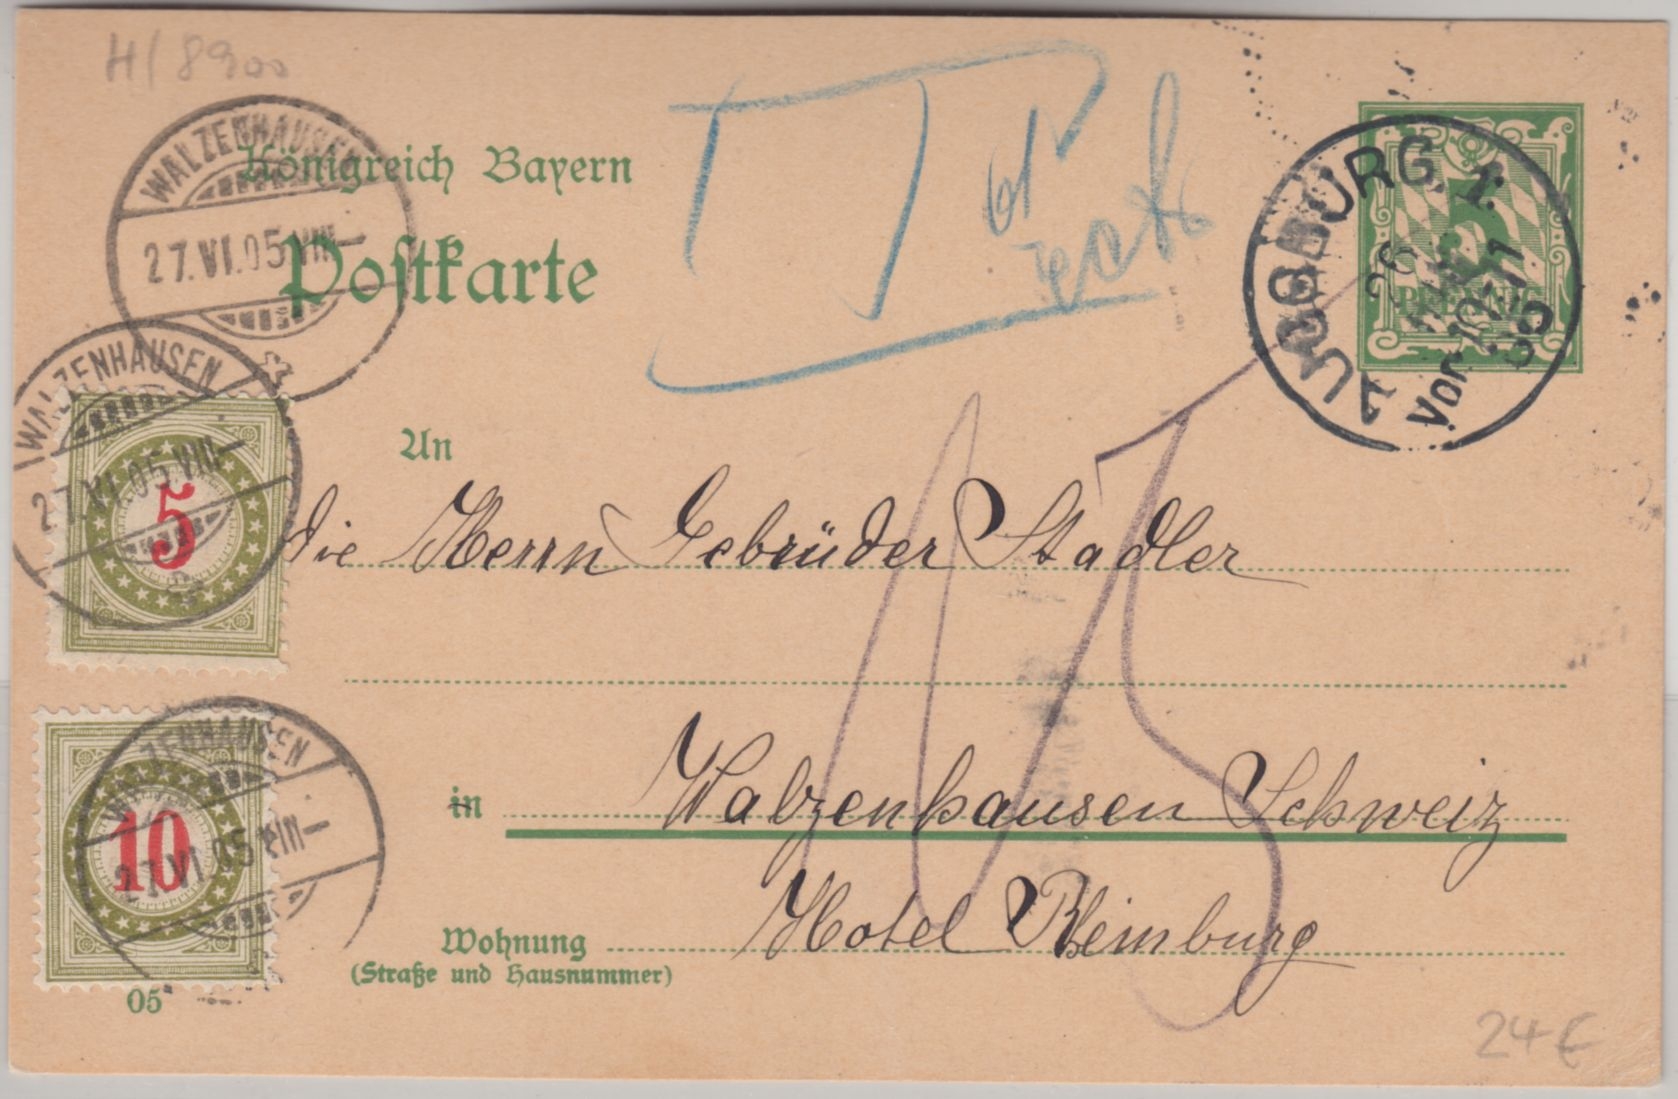 H/8900
WALZENHAUSEN
27.VI.05.VIII–
Königreich Bayern
Postkarte
T
AUGSBURG 1.
26
Vor. 10-11
05
PFENNIG
WALZENHAUSEN
27.VI.05.VIII–
5
An
die Herrn Gebrüder Stadler
15
in Walzenhausen Schweiz
WALZENHAUSEN
27.VI.05.VIII–
10
Wohnung Hotel Rheinburg
(Straße und Hausnummer)
05
24 €